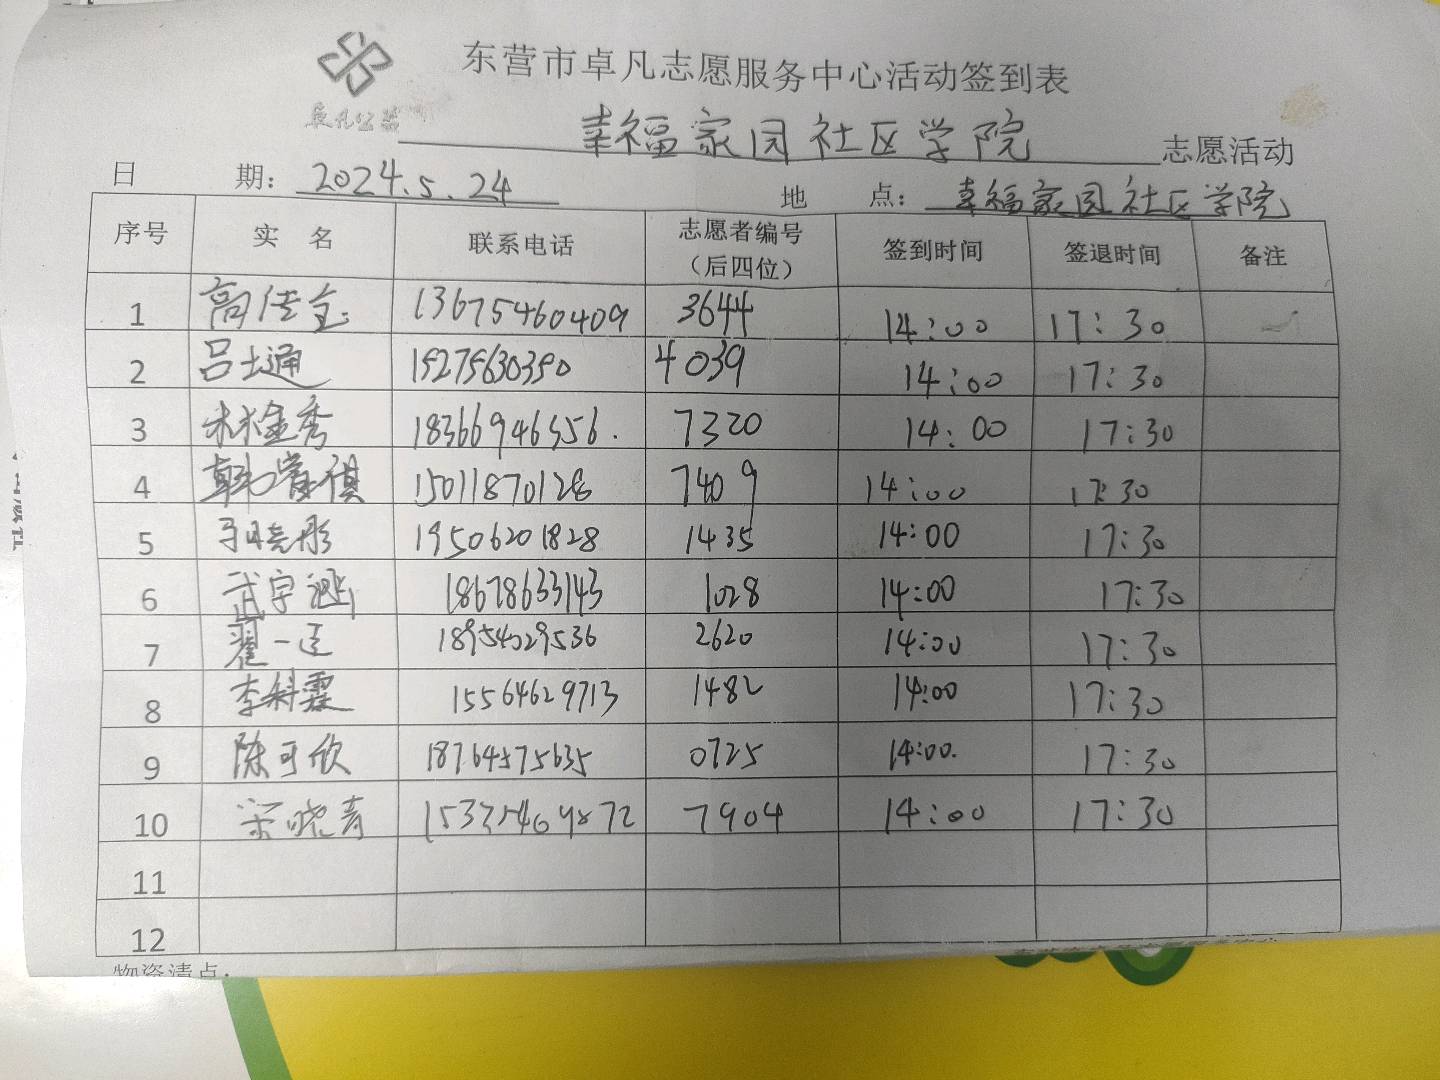 东营市卓凡志愿服务中心活动签到表
卓凡公益
幸福家园社区学院 志愿活动
日 期: 2024.5.24 地 点: 幸福家园社区学院
序号 实 名 联系电话 志愿者编号（后四位） 签到时间 签退时间 备注
1 高佳全 13675460409 3644 14:00 17:30
2 吕士通 15275630350 4039 14:00 17:30
3 林金秀 18366946556. 7320 14:00 17:30
4 韩 祺 15011870128 7409 14:00 17:30
5 马晓彤 19506201828 1435 14:00 17:30
6 武宇 18678633143 1028 14:00 17:30
7 翟一 18954029536 2620 14:00 17:30
8 李科霖 15564629713 1482 14:00 17:30
9 陈可欣 18764575635 0725 14:00. 17:30
10 宋晓青 7904 14:00 17:30
11
12
物资清点: